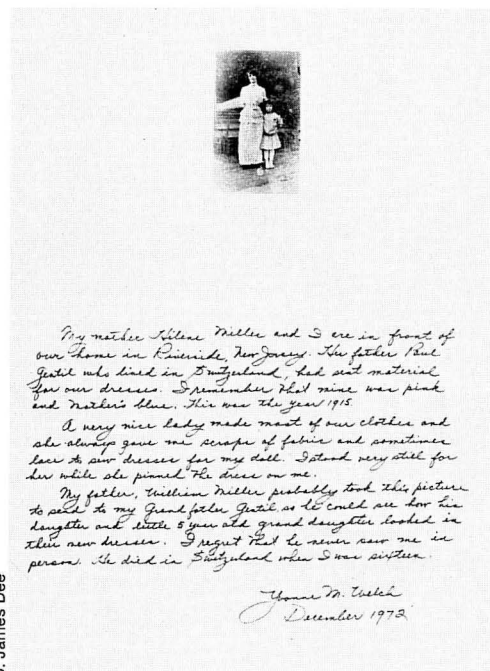 My mother Hilene Miller and I are in front of
our home in Riverside, New Jersey. Her father Paul
Gentil who lived in Switzerland, had sent material
for our dresses. I remember that mine was pink
and Mother's blue. This was the year 1915.
A very nice lady made most of our clothes and
she always gave me scraps of fabric and sometimes
lace to sew dresses for my doll. I stood very still for
her while she pinned the dress on me.
My father, William Miller probably took this picture
to send to my Grandfather Gentil so he could see how his
daughter and little 5 year old grand daughter looked in
their new dresses. I regret that he never saw me in
person. He died in Switzerland when I was sixteen.
Yvonne M. Welch
December 1972
James Dee